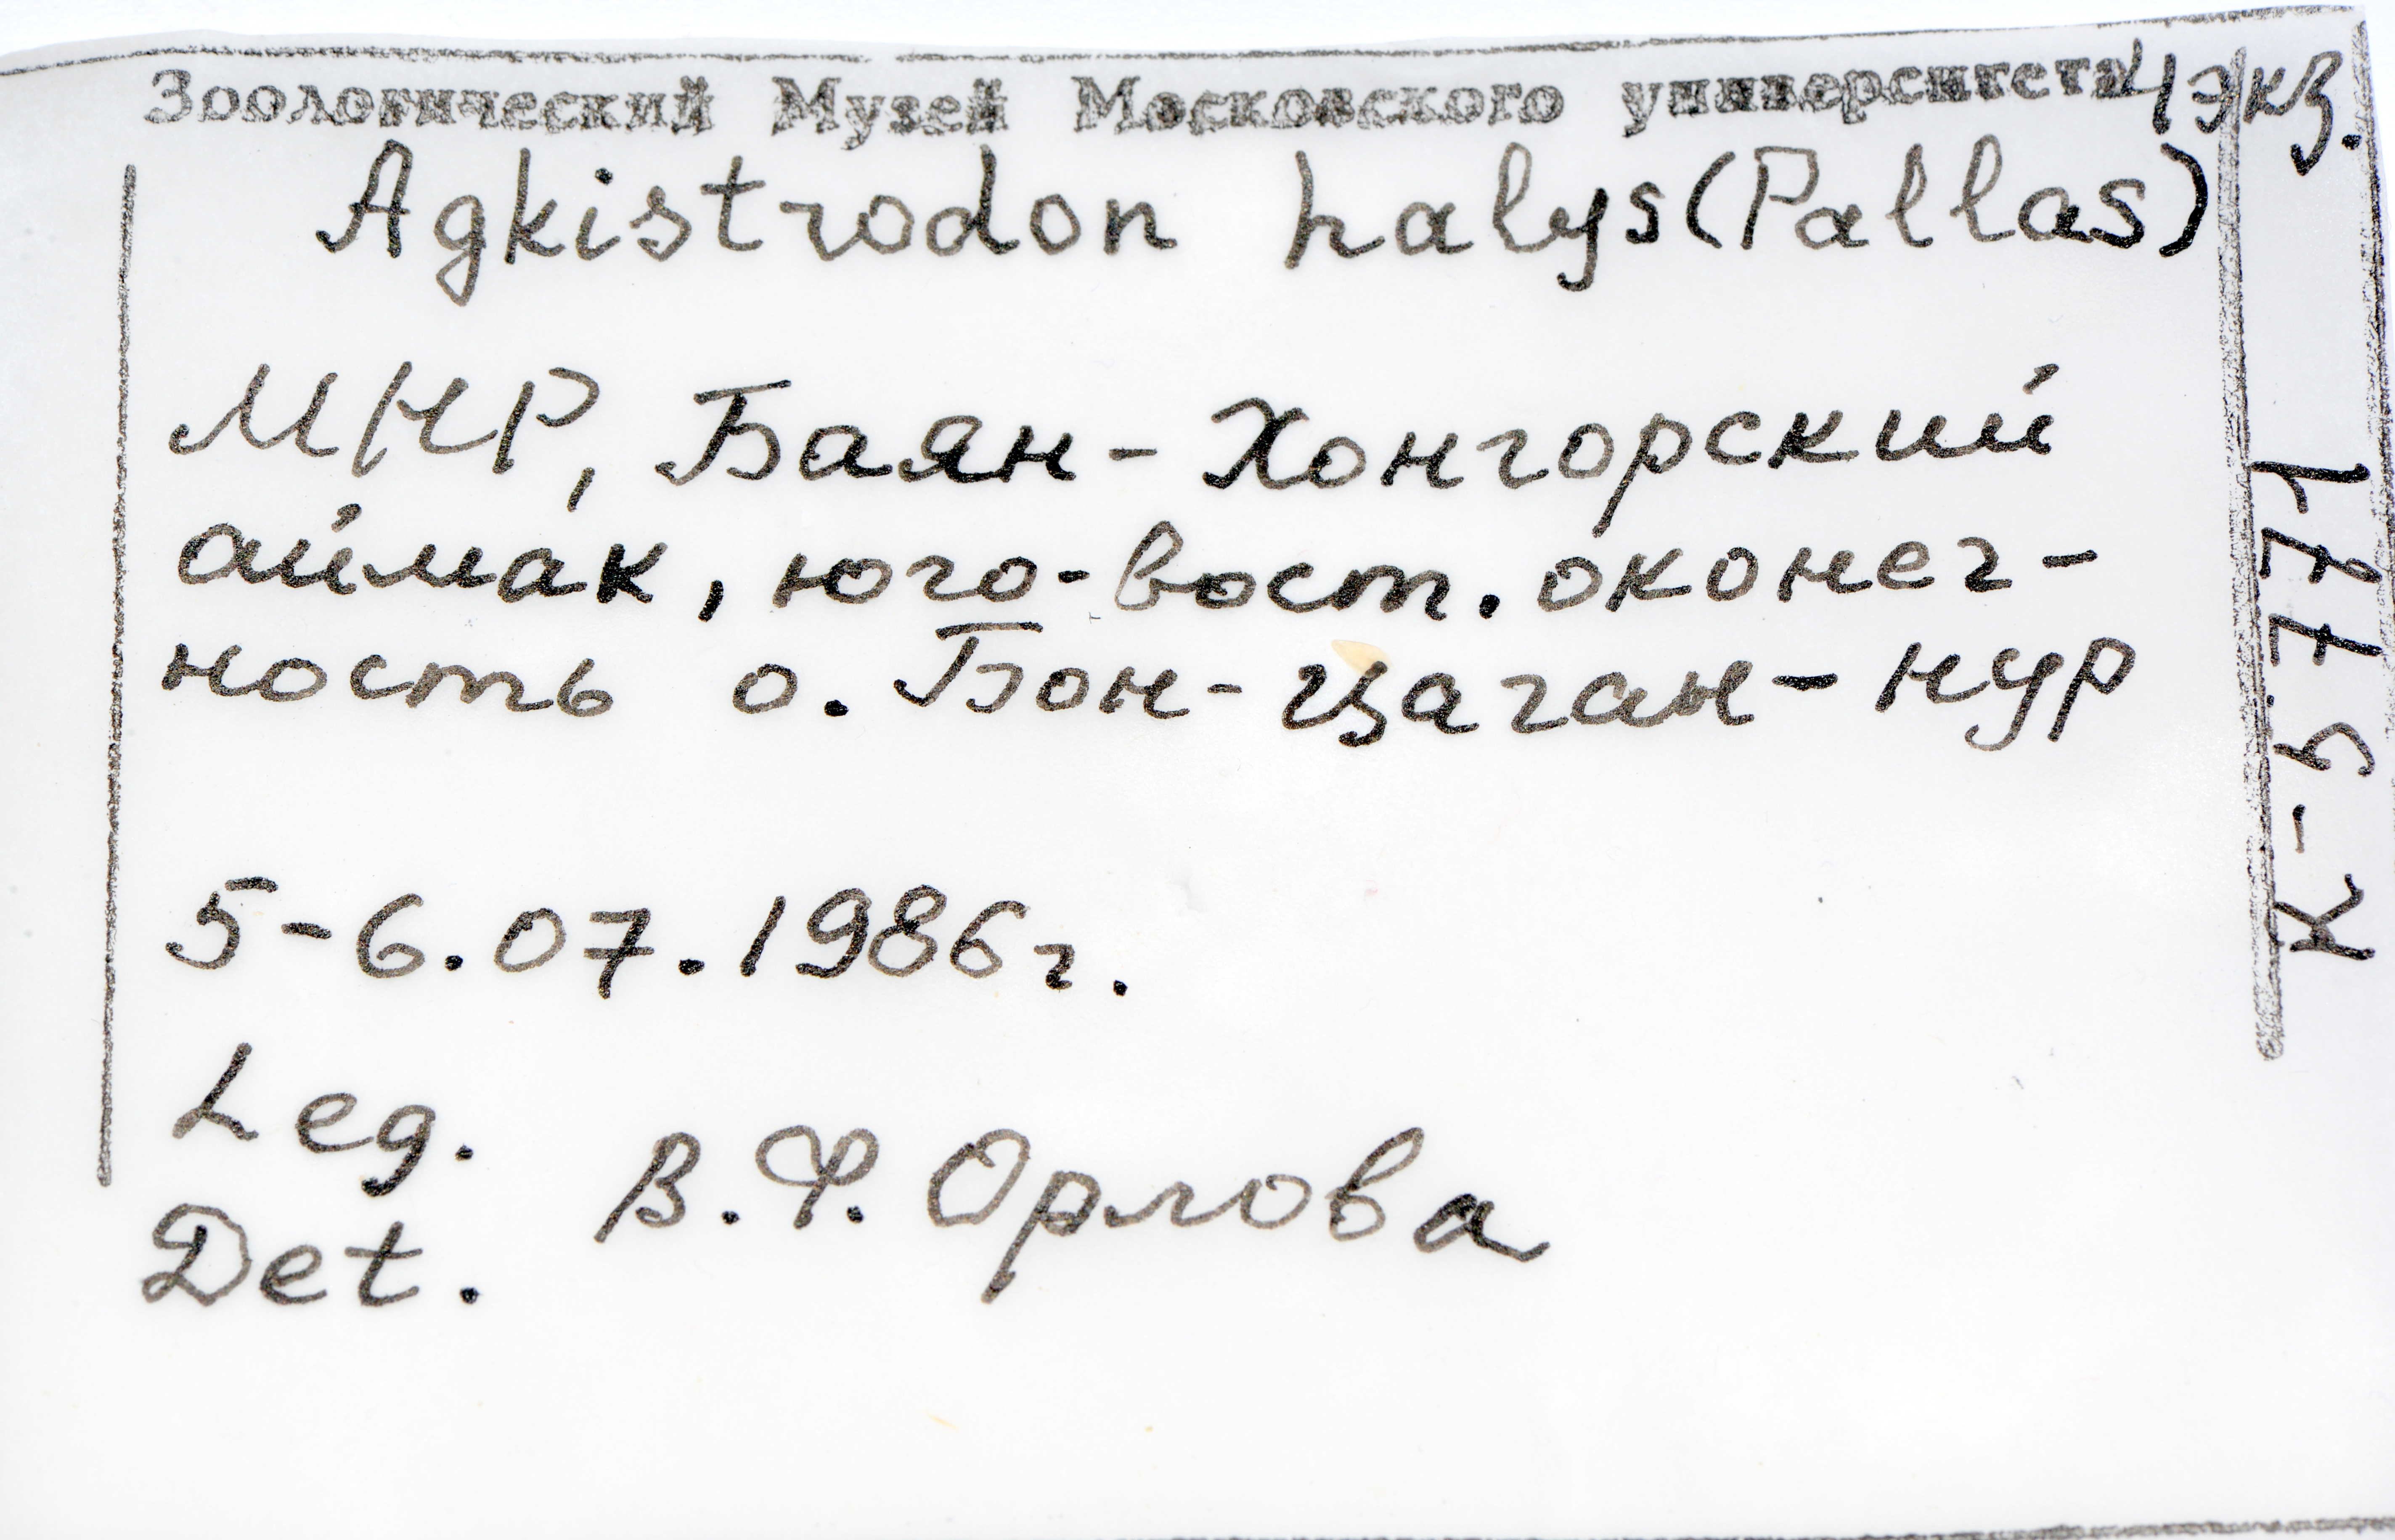 Зоологический Музей Московского университета 4 экз.
Agkistrodon halys (Pallas)
МНР, Баян-Хонгорский
аймак, юго-вост. оконеч-
ность о. Бон-Цаган-нур
5-6.07.1986г.
Leg.
В.Ф. Орлова
Det.
К-5771